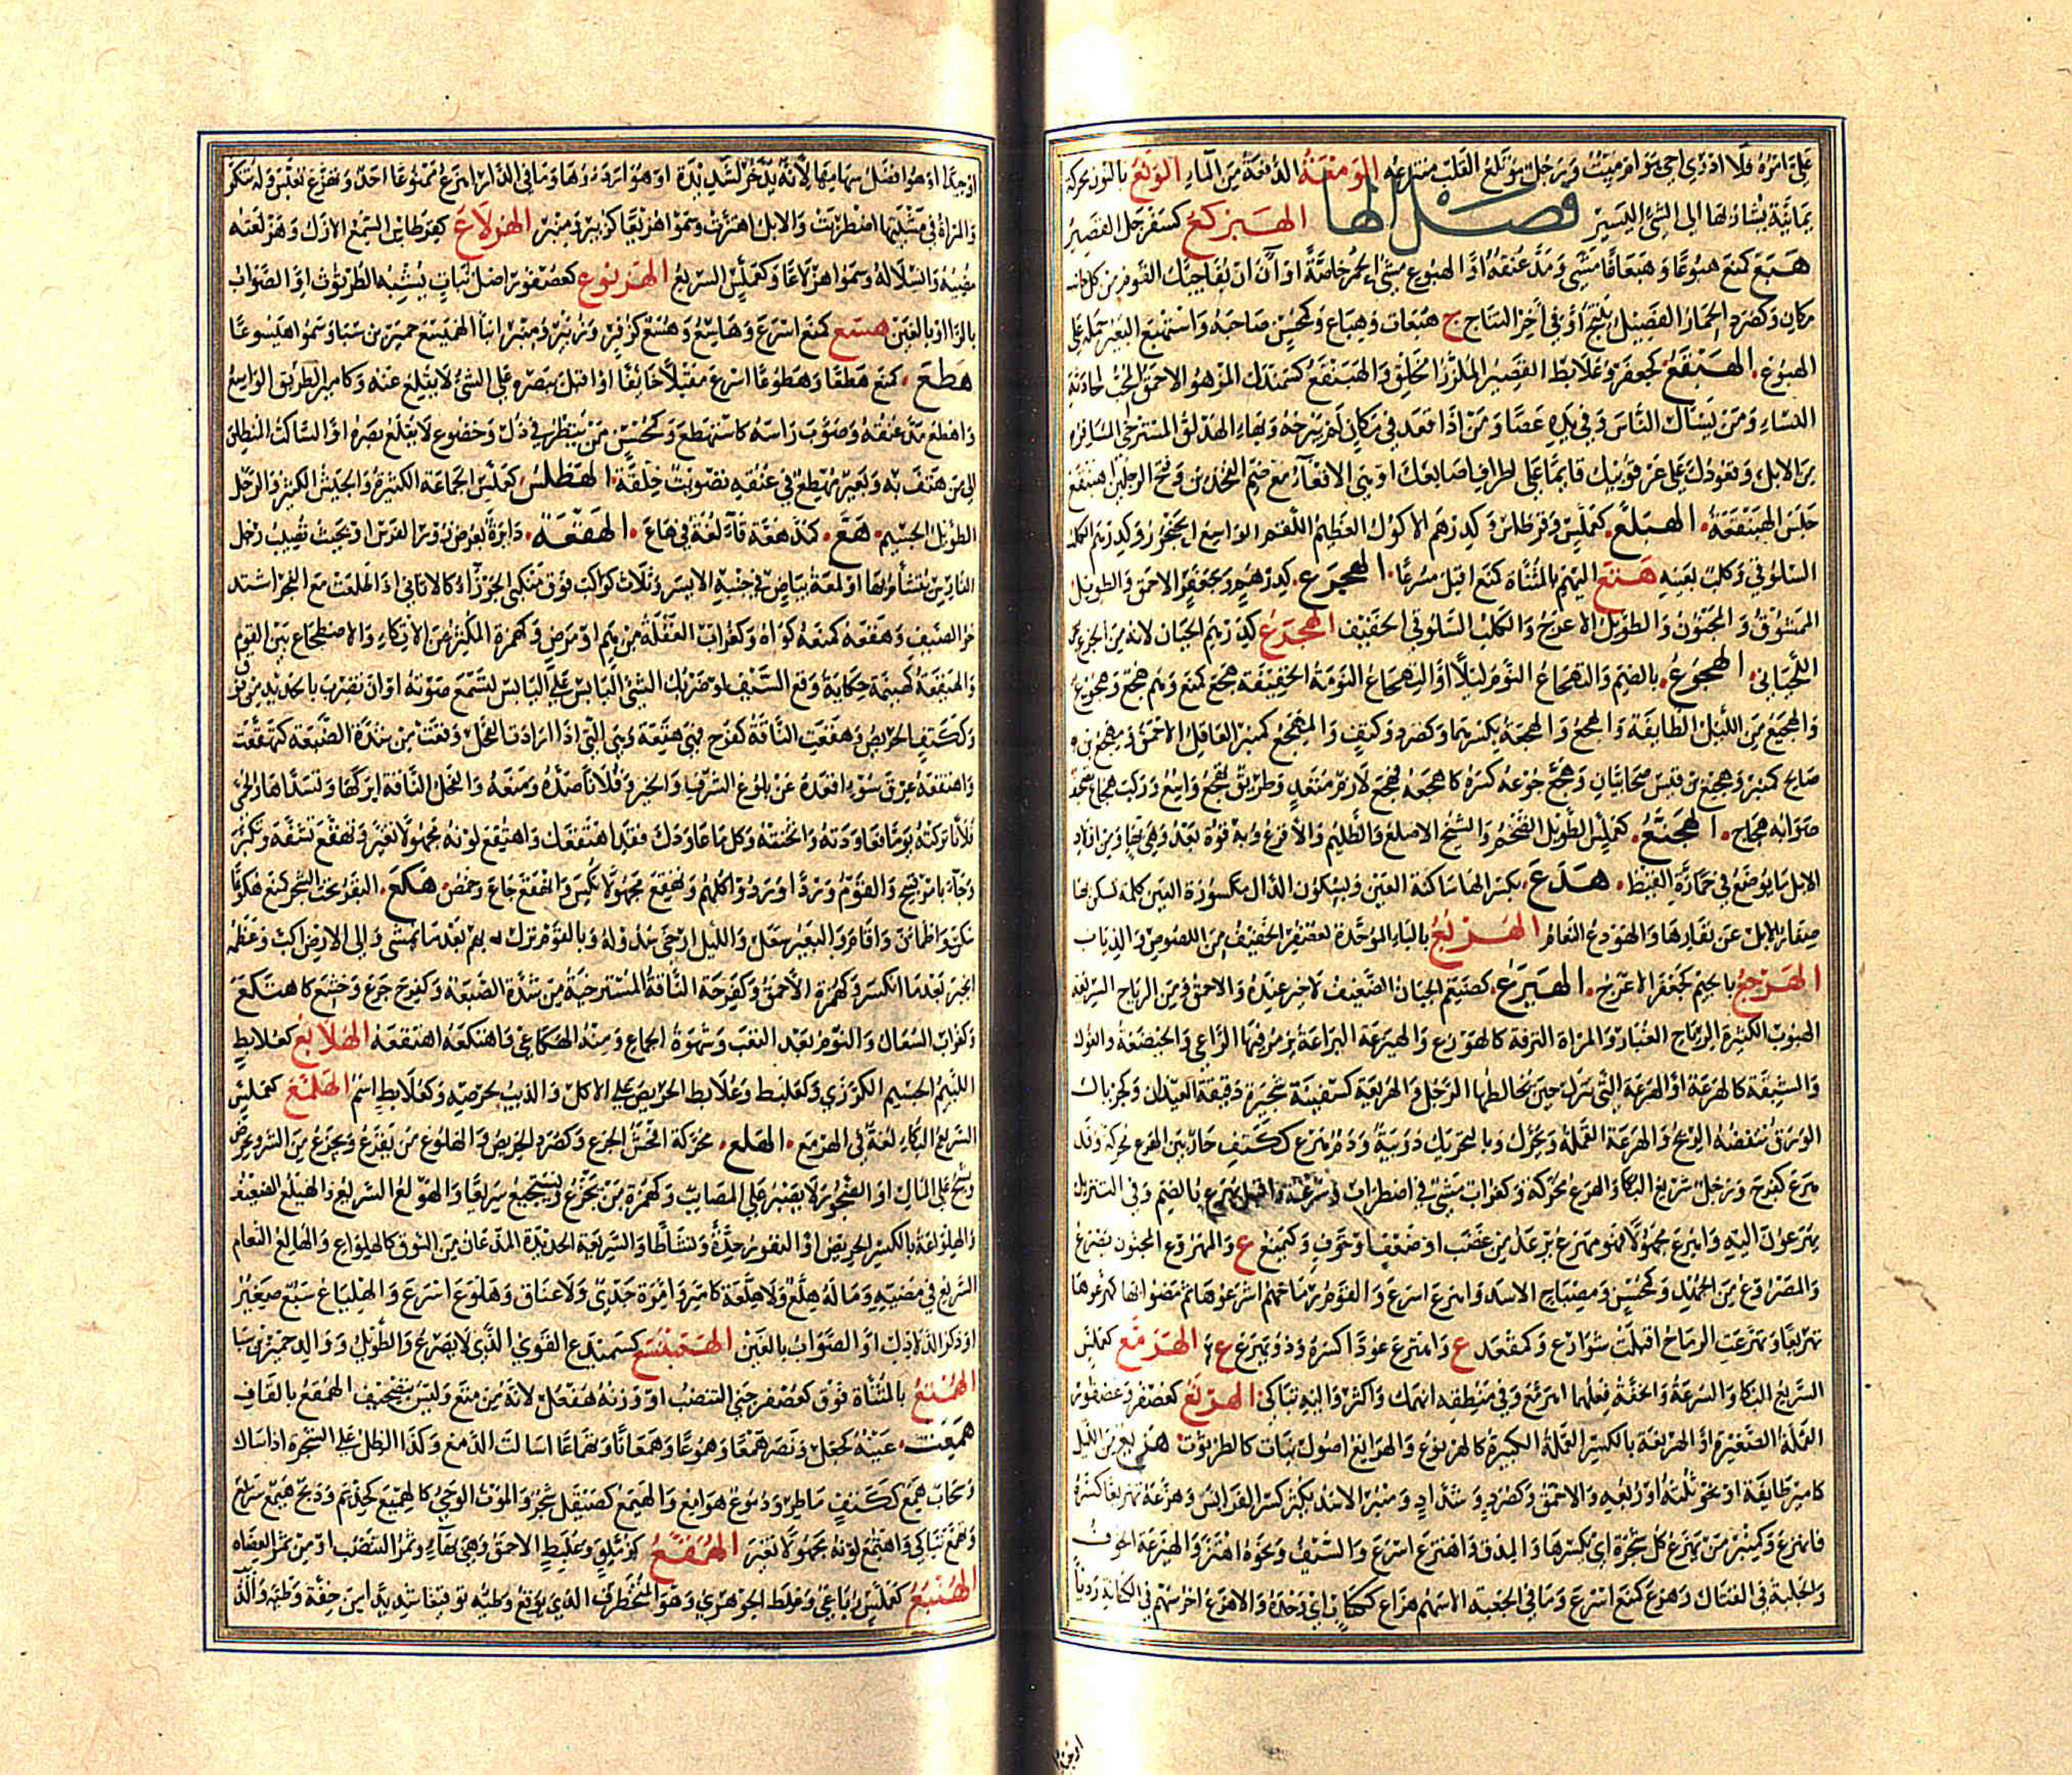 على امره فلا ادري احي هو ام ميت ورجل موتلع القلب منتزعه الومعة الدفعة من الماء الونع بالنون محركة
يمانية يشار بها الى الشئ اليسير فصل الها الهبركع كسفرجل القصير
هبع كمنع هبوعا وهبعانا مشى ومد عنقه او الهبوع مشى الحمر خاصة او ان يفاجيك القوم من كل جانب
مكان وكصرد الحمار الفصيل ينتج في آخر النتاج ج هبعات وهباع وكمحسن صاحبه واستهبع البعير حمله على
الهبوع الهبقع كجعفر وعلابط القصير الملزز الخلق والهبنقع كسمندل المزهو الاحمق المحب لمحادثة
النساء ومن يسال الناس وفي يده عصا ومن اذا قعد في مكان لم يبرحه وبهاء الهدلق المسترخي المشافر
من الابل وقعودك على عرقوبيك قايما على اطراف اصابعك او هي الاقعاء مع ضم الفخذين وفتح الرجلين اهبنقع
جلس الهبنقعة الهبلع كعملس وقرطاس وكدرهم الاكول العظيم اللقم الواسع الحنجور وكدرهم الكلب
السلوقي وكلب بعينه هتع اليهم بالمثناة كمنع اقبل مسرعا الهجرع كدرهم وجعفر الاحمق والطويل
الممشوق والمجنون والطويل الاعرج والكلب السلوقي الخفيف الهجدع كدرهم الجبان لانه من الجزع عن
اللحياني الهجوع بالضم والتهجاع النوم ليلا او التهجاع النومة الخفيفة هجع كمنع وهم هجع وهجوع
والهجيع من الليل الطايفة والهجع والهجعة بكسرهما وكصرد وكتف والمهجع كمنبر الغافل الاحمق ومهجع بن
صالح كمنبر وهجيع بن قيس صحابيان وهجع جوعه كسره كاهجعه فهجع لازم متعد وطريق تهجع واسع وركب هجاع صحف
صوابه هجاج الهجنع كعملس الطويل الضخم والشيخ الاصلع والظليم والاقرع وبه قوة بعد وهي بهاء ومن اولاد
الابل ما يوضع في حمارة القيظ هدع بكسر الها ساكنة العين وبسكون الدال مكسورة العين كلمة تسكن بها
صغار الابل عن نفارها والهودع النعام الهربع بالباء الموحدة كعصفر الخفيف من اللصوص والذياب
الهرجع بالجيم كجعفر الاعرج الهيرع كصيقل الجبان الضعيف لا خير عنده والاحمق ومن الرياح السريعة
الهبوب الكثيرة الغبار والمراة النزقة كالهورع والهيرعة اليراعة يزمر فيها الراعي والخيضعة والغول
والشبقة كالهرعة او الهرعة التي تنزل حين يخالطها الرجل والهريعة كسفينة شجيرة دقيقة العيدان وكجريال
الورق تنفضه الريح والهرعة القملة ويحرك وبالتحريك دويبة ودم هرع ككتف جار بين الهرع محركة وقد
هرع كفرح ورجل سريع البكا والهرع محركة وكغراب مشي في اضطراب وسرعة واقبل يهرع بالضم وفي التنزيل
يهرعون اليه واهرع مجهولا فهو مهرع يرعد من غضب او ضعف او خوف وكمنع ع والمهروع المجنون يصرع
والمصروع من الجهد وكمحسن ومصباح الاسد واهرع اسرع والقوم رماحهم اشرعوها ثم مضوا بها كهرعوها
تهريعا وتهرعت الرماح اقبلت شوارع وكمقعد ع واهترع عودا كسره وذو يهرع ع الهرمع كعملس
السريع البكا والسرعة والخفة فعلهما اهرمع وفي منطقه انهمك واكثر واليه تباكى الهرنع كعصفر وعصفور
القملة الصغيرة او الهرنعة بالكسر القملة الكبيرة كالهرنوع والهرانع اصول نبات كالطرثوث هزيع من الليل
كامير طايفة او نحو ثلثه او ربعه والاحمق وكصرد وشداد ومنبر الاسد يكثر كسر الفرايس وهزعه تهزيعا كسره
فانهزع وكمنبر من يهزع كل شجرة اي يكسرها والمدق واهتزع اسرع والسيف ونحوه اهتز والهيزعة الخوف
والجلبة في القتال وهزع كمنع اسرع وما في الجعبة الا سهم هزاع ككتاب اي وحده والاهزع اخر سهم في الكنانة رديا
اوجيدا او هو افضل سهامها لانه يدخر لشديدة او هو ارداوها وما في الدار اهزع ممنوعا احد وتهزع تعبس وله تنكر
والمراة في مشيتها اضطربت والابل اهتزت وسموا هزيعا كزبير ومنبر الهزلاع كقرطاس السمع الازل وهزلعته
مضيه وانسلاله وسموا هزلاعا وكعملس السريع الهزنوع كعصفور اصل نبات يشبه الطرثوث او الصواب
بالرا او بالغين هسع كمنع اسرع وهاسع وهسع كزفر وزبير ومنبر ابنا الهميسع حمير من سبا وسموا هيسوعا
هطع كمنع هطعا وهطوعا اسرع مقبلا خايفا او اقبل ببصره على الشئ لا يقلع عنه وكامير الطريق الواسع
واهطع مد عنقه وصوب راسه كاستهطع وكمحسن من ينظر في ذل وخضوع لا يقلع بصره او الساكت المنطلق
الى من هتف به وبعير مهطع في عنقه تصويب خلقة الهطلع كعملس الجماعة الكثيرة والجيش الكثير والرجل
الطويل الجسيم هع كمد هعة قاء لغة في هاع الهقعة دايرة تعرض بزور الفرس او بحيث تصيب رجل
الفارس يتشاءم بها او لمعة بياض في جنبه الايسر وثلاث كواكب فوق منكبي الجوزاء كالاثافي اذا طلعت مع الفجر اشتد
حر الصيف وهقعه كمنعه كواه وكغراب الغفلة من هم او مرض وكهمزة المكثر من الاتكاء والاضطجاع بين القوم
والهيقعة كهينمة حكاية وقع السيف او ضربك الشئ اليابس على اليابس لتسمع صوته او ان تضرب بالحديد من فوق
وككتف الحريص وهقعت الناقة كفرح فهي هقعة وهي التي اذا ارادت الفحل وقعت من شدة الضبعة كتهقعت
واهتقعه عرق سوء اقعده عن بلوغ الشرف والخير وفلانا صده ومنعه والفحل الناقة ابركها وتسداها والحمى
فلانا تركته يوما فعاودته واثخنته وكل ما عاودك فقد اهتقعك واهتقع لونه مجهولا تغير وتهقع تسفه وتكبر
وجاء بامر قبيح والقوم وردا وردوا كلهم وتهقع مجهولا نكس وانهقع جاع وخمص هكع البقر تحت الشجر كمنع هكوعا
سكن واطمان واقام والبعير سعل والليل ارخى سدوله وبالقوم نزل بهم بعد ما يمشى والى الارض اكب وعظمه
انجبر بعد ما انكسر وكهمزة الاحمق وكفرحة الناقة المسترخية من شدة الضبعة وكفرح جزع وخشع كاهتكع
وكغراب السعال والنوم بعد التعب وشهوة الجماع ومنه الهكاعي فاهتكعه اهتقعه الهلابع كعلابط
اللئيم الجسيم الكرزي وكعلبط وعلابط الحريص على الاكل والذيب لحرصه وكعلابط اسم الهلمع كعملس
السريع البكاء لغة في الهرمع الهلع محركة افحش الجزع وكصرد الحريص والهلوع من يفزع ويجزع من الشر ويحرص
ويشح على المال او الضجور لا يصبر على المصائب وكهمزة من يجزع ويستجيع سريعا والهولع السريع والهيلع الضعيف
والهلواعة بالكسر الحريص او النفور حدة ونشاطا والسريعة الحديدة المذعان من النوق كالهلواع والهالع النعام
السريع في مضيه وما له هلع ولا هلعة كامر وامرة جدي ولا عناق وهلوع اسرع والهلياع سبع صغير
او ذكر الدلادل او الصواب بالغين الهميسع كسميدع القوي الذي لا يصرع والطويل ووالد حمير بن سبا
الهمتع بالمثناة فوق كعصفر جنى التنضب او وزنه هفعل لانه من متع وليس بتصحيف الهمقع بالقاف
همعت عينه كجعل ونصر همعا وهموعا وهمعانا وتهماعا اسالت الدمع وكذا الطل على الشجرة اذا سال
وسحاب همع ككتف ماطر ودموع هوامع والهيمع كصيقل شجر والموت الوحي كالهميع كحذيم وذبح هيمع سريع
وتهمع تباكى واهتمع لونه مجهولا تغير الهمقع كزملق وعلبط الاحمق وهي بهاء وثمر التنضب او من ثمر العضاه
الهملع كعملس رباعي وغلط الجوهري وهو المتخطرف الذي يوقع وطئه توقيعا شديدا من خفة وطئه والذ